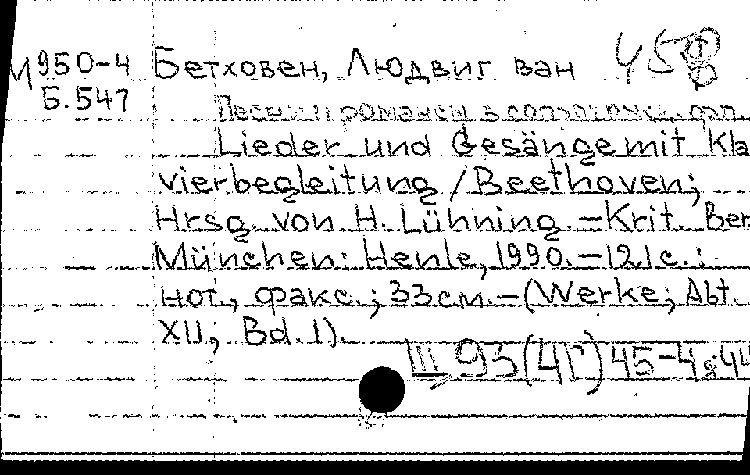 М950-4 Бетховен, Людвиг ван 458
Б.547
Песни и романсы в сопровожд. фп.
Lieder und Gesänge mit Kla
vierbegleitung / Beethoven;
Hrsg. von H. Lühning. - Krit. Ber
München: Henle, 1990. - 121 c.:
нот., факс.; 33 см. - (Werke; Abt.
XII; Bd. 1).
Ш 93(4Г)45-4